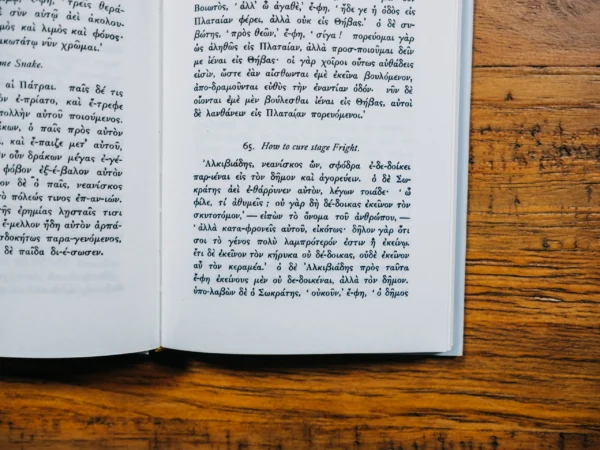 τρεῖς θερά-
σὺν αὐτῷ ἀεὶ ἀκολου-
μὸς καὶ λιμὸς καὶ φόνος·
ικωτάτῳ νῦν χρῶμαι.’
me Snake.
αἱ Πάτραι. παῖς δέ τις
ἐ-πρίατο, καὶ ἔ-τρεφε
πολλὴν αὐτοῦ ποιούμενος.
κων, ὁ παῖς πρὸς αὐτὸν
καὶ ἔ-παιζε μετ’ αὐτοῦ,
ν οὖν δράκων μέγας ἐ-γέ-
φόβον ἐξ-έ-βαλον αὐτὸν
δὲ ὁ παῖς, νεανίσκος
πόλεώς τινος ἐπ-αν-ιών.
τῆς ἐρημίας λῃσταῖς τισι
ἔ-μελλον ἤδη αὐτὸν ἁρπά-
σδοκήτως παρα-γενόμενος,
δὲ παῖδα δι-έ-σωσεν.
Βοιωτός, ‘ἀλλ’ ὦ ἀγαθέ,’ ἔ-φη, ‘ἥδε γε ἡ ὁδὸς εἰς
Πλαταίαν φέρει, ἀλλὰ οὐκ εἰς Θήβας.’ ὁ δὲ συ-
βώτης, ‘πρὸς θεῶν,’ ἔ-φη, ‘σίγα! πορεύομαι γὰρ
ὡς ἀληθῶς εἰς Πλαταίαν, ἀλλὰ προσ-ποιοῦμαι δεῖν
με ἰέναι εἰς Θήβας· οἱ γὰρ χοῖροι οὕτως αὐθάδεις
εἰσίν, ὥστε ἐὰν αἴσθωνται ἐμὲ ἐκεῖνα βουλόμενον,
ἀπο-δραμοῦνται εὐθὺς τὴν ἐναντίαν ὁδόν· νῦν δὲ
οἴονται ἐμὲ μὲν βούλεσθαι ἰέναι εἰς Θήβας, αὐτοὶ
δὲ λανθάνειν εἰς Πλαταίαν πορευόμενοι.’
65. How to cure stage Fright.
Ἀλκιβιάδης, νεανίσκος ὤν, σφόδρα ἐ-δε-δοίκει
παρ-ιέναι εἰς τὸν δῆμον καὶ ἀγορεύειν. ὁ δὲ Σω-
κράτης ἀεὶ ἐ-θάρρυνεν αὐτόν, λέγων τοιάδε· ‘ὦ
φίλε, τί ἀθυμεῖς; οὐ γὰρ δὴ δέ-δοικας ἐκεῖνον τὸν
σκυτοτόμον,’—εἰπὼν τὸ ὄνομα τοῦ ἀνθρώπου,—
‘ἀλλὰ κατα-φρονεῖς αὐτοῦ, εἰκότως· δῆλον γὰρ ὅτι
σοι τὸ γένος πολὺ λαμπρότερόν ἐστιν ἢ ἐκείνῳ.
ἔτι δὲ ἐκεῖνον τὸν κήρυκα οὐ δέ-δοικας, οὐδὲ ἐκεῖνον
αὖ τὸν κεραμέα.’ ὁ δὲ Ἀλκιβιάδης πρὸς ταῦτα
ἔ-φη ἐκείνους μὲν οὐ δε-δοικέναι, ἀλλὰ τὸν δῆμον.
ὑπο-λαβὼν δὲ ὁ Σωκράτης, ‘οὐκοῦν,’ ἔ-φη, ‘ὁ δῆμος